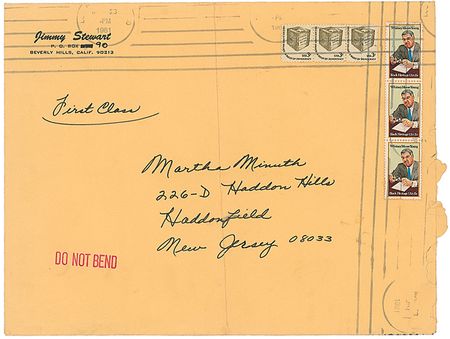 Jimmy Stewart
P. O. BOX 90
BEVERLY HILLS, CALIF. 90213
PM
1981
First Class
Martha Minuth
226-D Haddon Hills
Haddonfield
New Jersey 08033
DO NOT BEND
Whitney Moore Young
Black Heritage USA 15c
Whitney Moore Young
Black Heritage USA 15c
Whitney Moore Young
Black Heritage USA 15c
1981